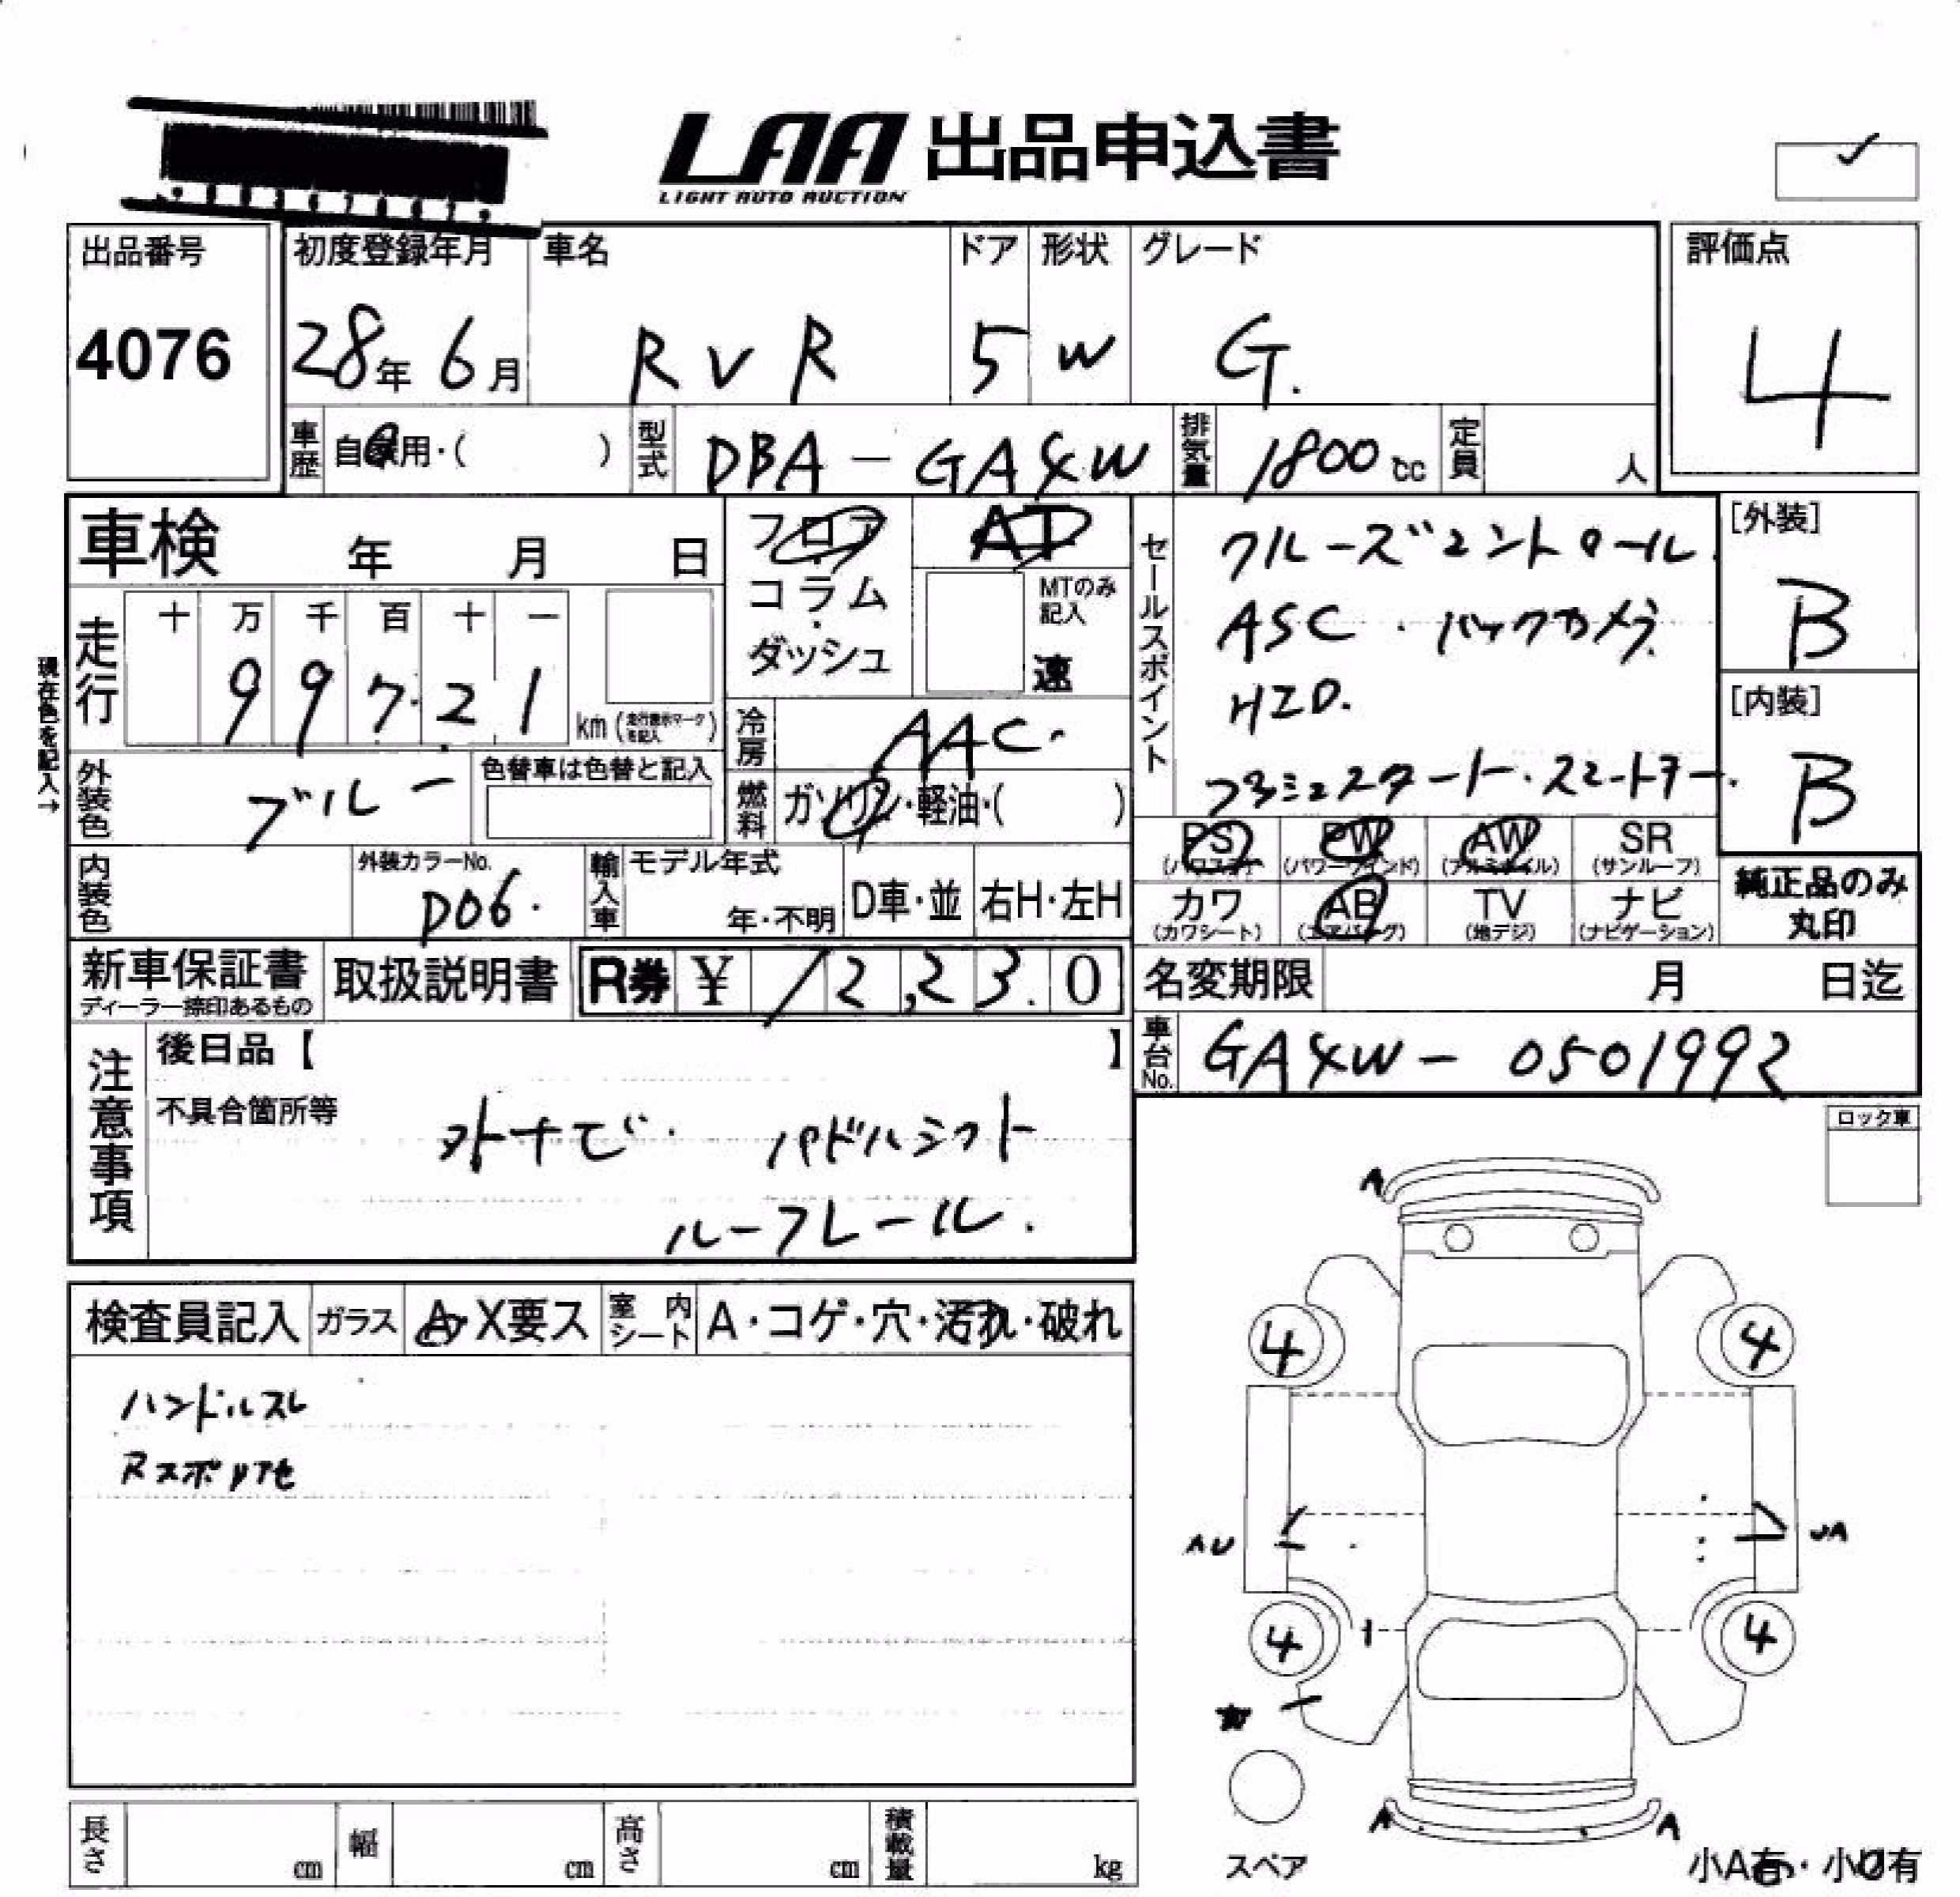 LAA 出品申込書
LIGHT AUTO AUCTION
出品番号
4076
初度登録年月
28年 6月
車名
RVR
ドア
5
形状
W
グレード
G.
評価点
4
車歴
自家用・( )
型式
DBA-GA4W
排気量
1800cc
定員
人
車検 年 月 日
走行
十 万 千 百 十 一
9 9 7 2 1
km (走行表示マークを記入)
現在色を記入→
フロア
コラム
ダッシュ
AT
MTのみ記入
速
冷房
AAC.
燃料
ガソリン・軽油・( )
セールスポイント
クルーズコントロール.
ASC . バックカメラ.
HID.
プッシュスタート・スマートキー.
[外装]
B
[内装]
B
外装色
ブルー
色替車は色替と記入
内装色
外装カラーNo.
D06.
輸入車
モデル年式
年・不明
D車・並
右H・左H
PS
(パワステ)
PW
(パワーウインド)
AW
(アルミホイル)
SR
(サンルーフ)
カワ
(カワシート)
AB
(エアバッグ)
TV
(地デジ)
ナビ
(ナビゲーション)
純正品のみ
丸印
新車保証書
ディーラー捺印あるもの
取扱説明書
R券 ¥ 12,23.0
名変期限 月 日迄
車台No.
GA4W-0501992
注意事項
後日品【 】
不具合箇所等
外ナビ. パドルシフト
ルーフレール.
ロック車
検査員記入
ガラス
A・X要ス
室内シート
A・コゲ・穴・汚れ・破れ
ハンドルスレ
A
4
4
AU
UA
4
4
A
A
スペア
小A有・小U有
長さ cm
幅 cm
高さ cm
積載量 kg